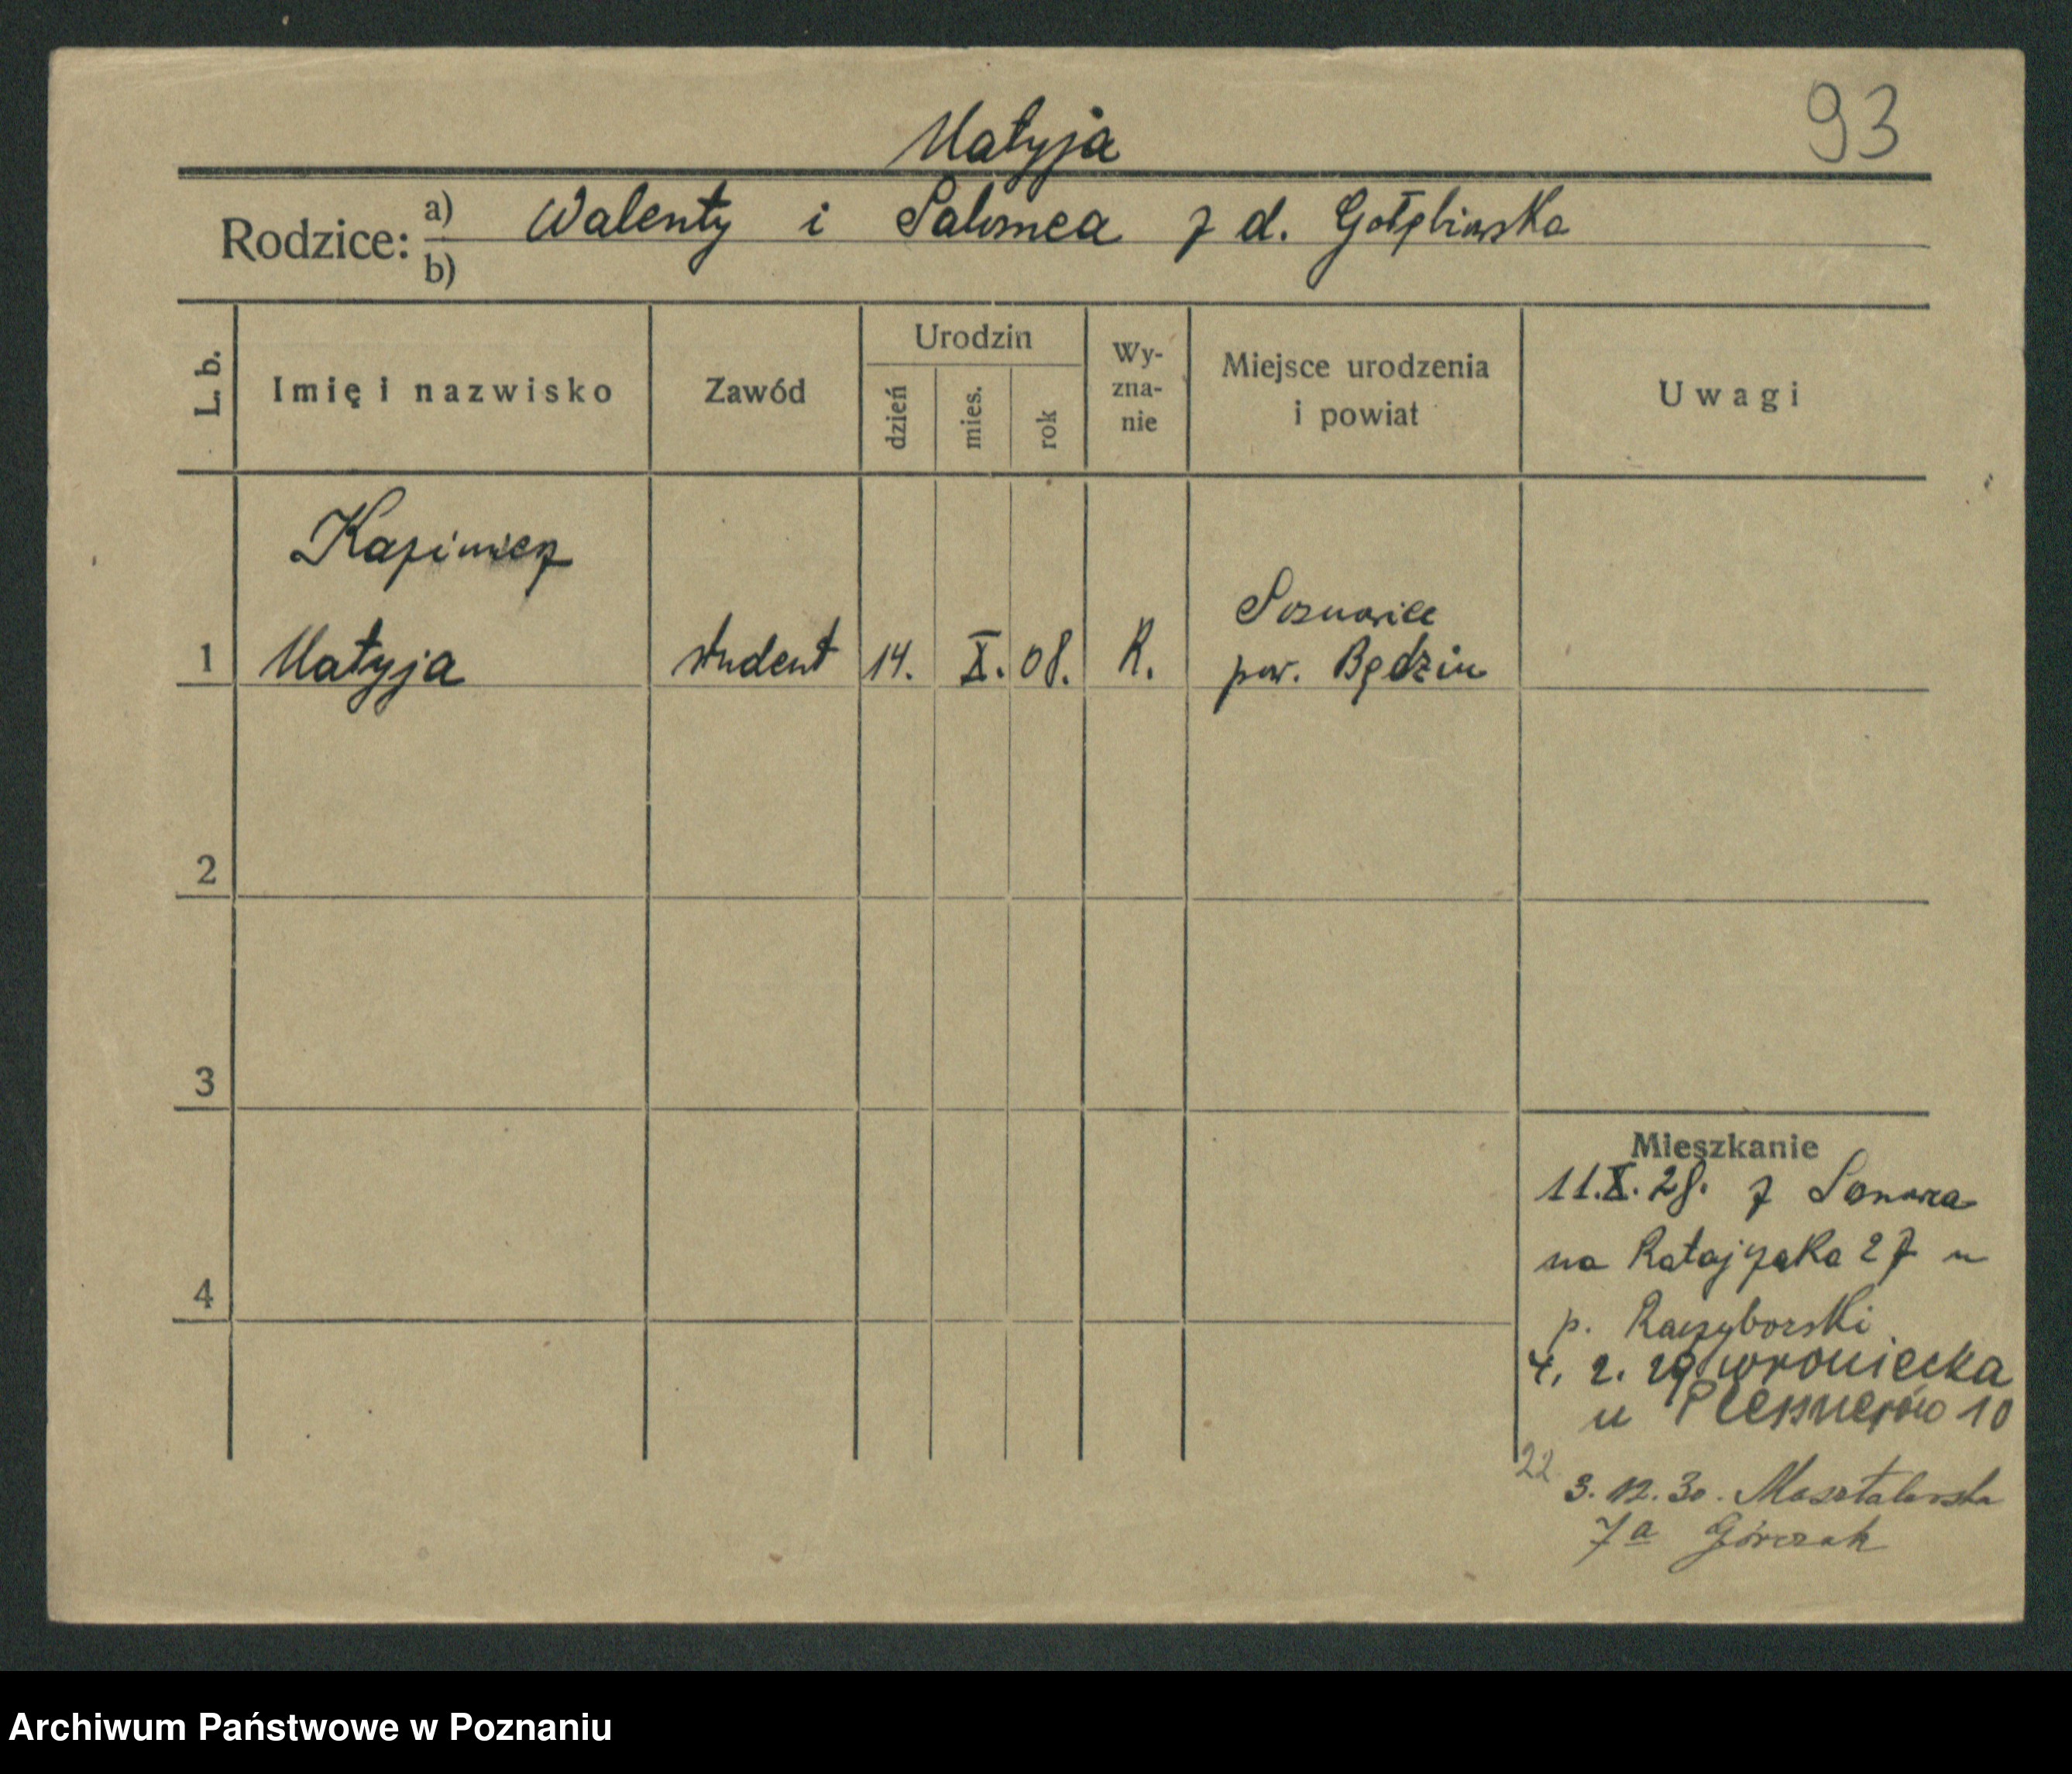 93
Matyja
Rodzice: a) Walenty i Salomea z d. Gołębiowska
b)
L. b.
Imię i nazwisko
Zawód
Urodzin
dzień
mies.
rok
Wy-
zna-
nie
Miejsce urodzenia
i powiat
Uwagi
Kazimierz
1 Matyja student 14. X. 08. R. Sosnowiec
pow. Będzin
2
3
4
Mieszkanie
11.X.28. z Sosnowca
na Ratajczaka 27 u
p. Raczyborski
4. 2. 29 Wroniecka
u Plessnerów 10
22
3. 12. 30. Masztalarska
7a Górczak
Archiwum Państwowe w Poznaniu